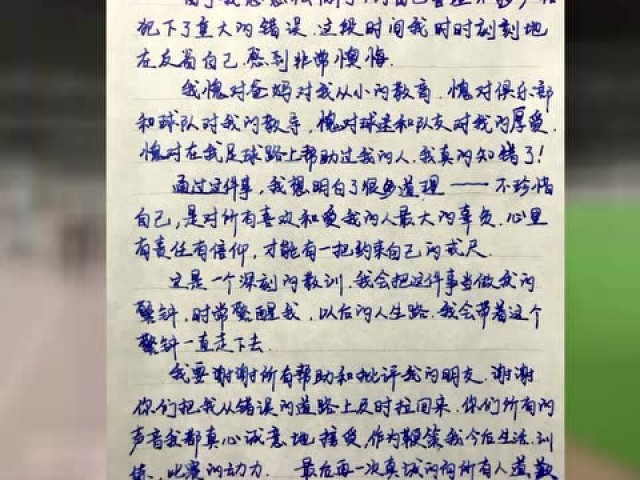 犯下了重大的错误.这段时间我时时刻刻地
在反省自己.感到非常懊悔.
我愧对爸妈对我从小的教育.愧对俱乐部
和球队对我的教导,愧对球迷和队友对我的厚爱.
愧对在我足球路上帮助过我的人.我真的知错了!
通过这件事,我想明白了很多道理——不珍惜
自己,是对所有喜欢和爱我的人最大的辜负.心里
有责任有信仰,才能有一把约束自己的戒尺.
这是一个深刻的教训.我会把这件事当做我的
警钟,时常警醒我,以后的人生路.我会带着这个
警钟一直走下去.
我要谢谢所有帮助和批评我的朋友.谢谢
你们把我从错误的道路上及时拉回来.你们所有的
声音我都真心诚意地接受,作为鞭策我今后生活.训
练、比赛的动力. 最后再一次真诚的向所有人道歉